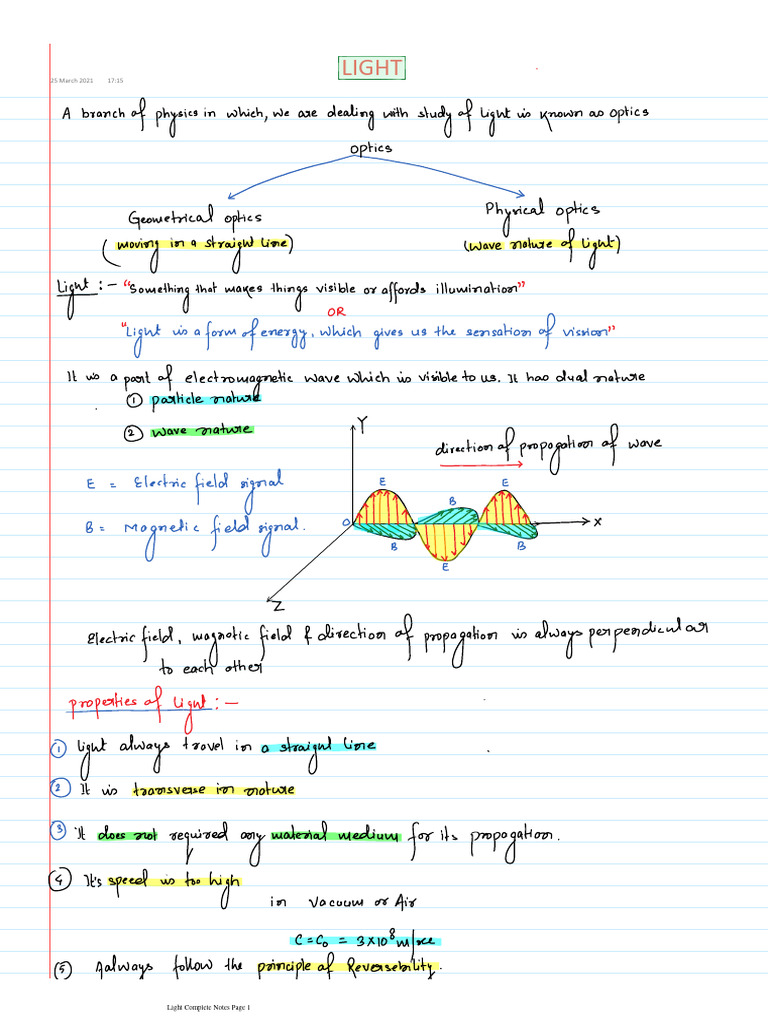 LIGHT
25 March 2021 17:15
A branch of physics in which, we are dealing with study of light is known as optics
optics
Geometrical optics
Physical optics
(moving in a straight line)
(wave nature of light)
Light :- "Something that makes things visible or affords illumination"
OR
"Light is a form of energy, which gives us the sensation of vission"
It is a part of electromagnetic wave which is visible to us. It has dual nature
① particle nature
② wave nature
Y
direction of propagation of wave
E = Electric field signal
E
E
B
B = Magnetic field signal.
O
X
B
B
E
Z
Electric field, magnetic field & direction of propagation is always perpendicular
to each other
properties of Light :-
① light always travel in a straight line
② It is transverse in nature
③ It does not required any material medium for its propagation.
④ It's speed is too high
in Vacuum or Air
C = C₀ = 3×10⁸ m/sec
⑤ Aalways follow the principle of Reversebility.
Light Complete Notes Page 1